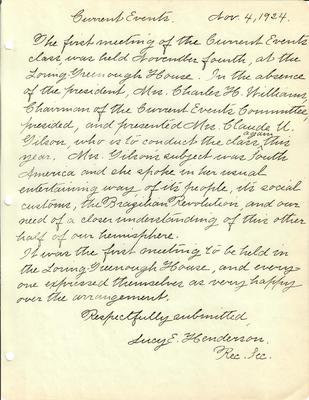 Current Events. Nov. 4, 1924.
The first meeting of the Current Events
class, was held November fourth, at the
Loring Greenough House. In the absence
of the president, Mrs. Charles H. Williams,
Chairman of the Current Events Committee,
presided, and presented Mrs. Claude U.
Gilson, who is to conduct the class, again this
year. Mrs. Gilson's subject was South
America and she spoke in her usual
entertaining way, of its people, its social
customs, the Brazilian Revolution, and our
need of a closer understanding of this other
half of our hemisphere.
It was the first meeting to be held in
the Loring Greenough House, and every-
one expressed themselves as very happy
over the arrangement.
Respectfully submitted,
Lucy E. Henderson,
Rec. Sec.